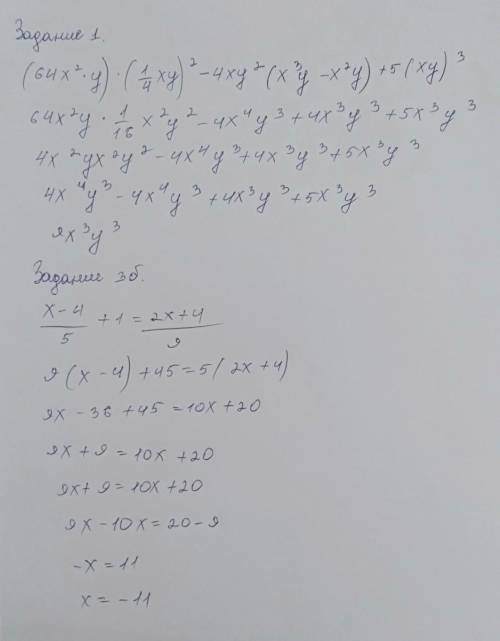 Задание 1.
(64x²·y)·(1/4 xy)² - 4xy²(x³y - x²y) + 5(xy)³
64x²y · 1/16 x²y² - 4x⁴y³ + 4x³y³ + 5x³y³
4x²yx²y² - 4x⁴y³ + 4x³y³ + 5x³y³
4x⁴y³ - 4x⁴y³ + 4x³y³ + 5x³y³
9x³y³
Задание 3б.
(x-4)/5 + 1 = (2x+4)/9
9(x-4)+45=5(2x+4)
9x - 36 + 45 = 10x + 20
9x + 9 = 10x + 20
9x + 9 = 10x + 20
9x - 10x = 20 - 9
-x = 11
x = -11